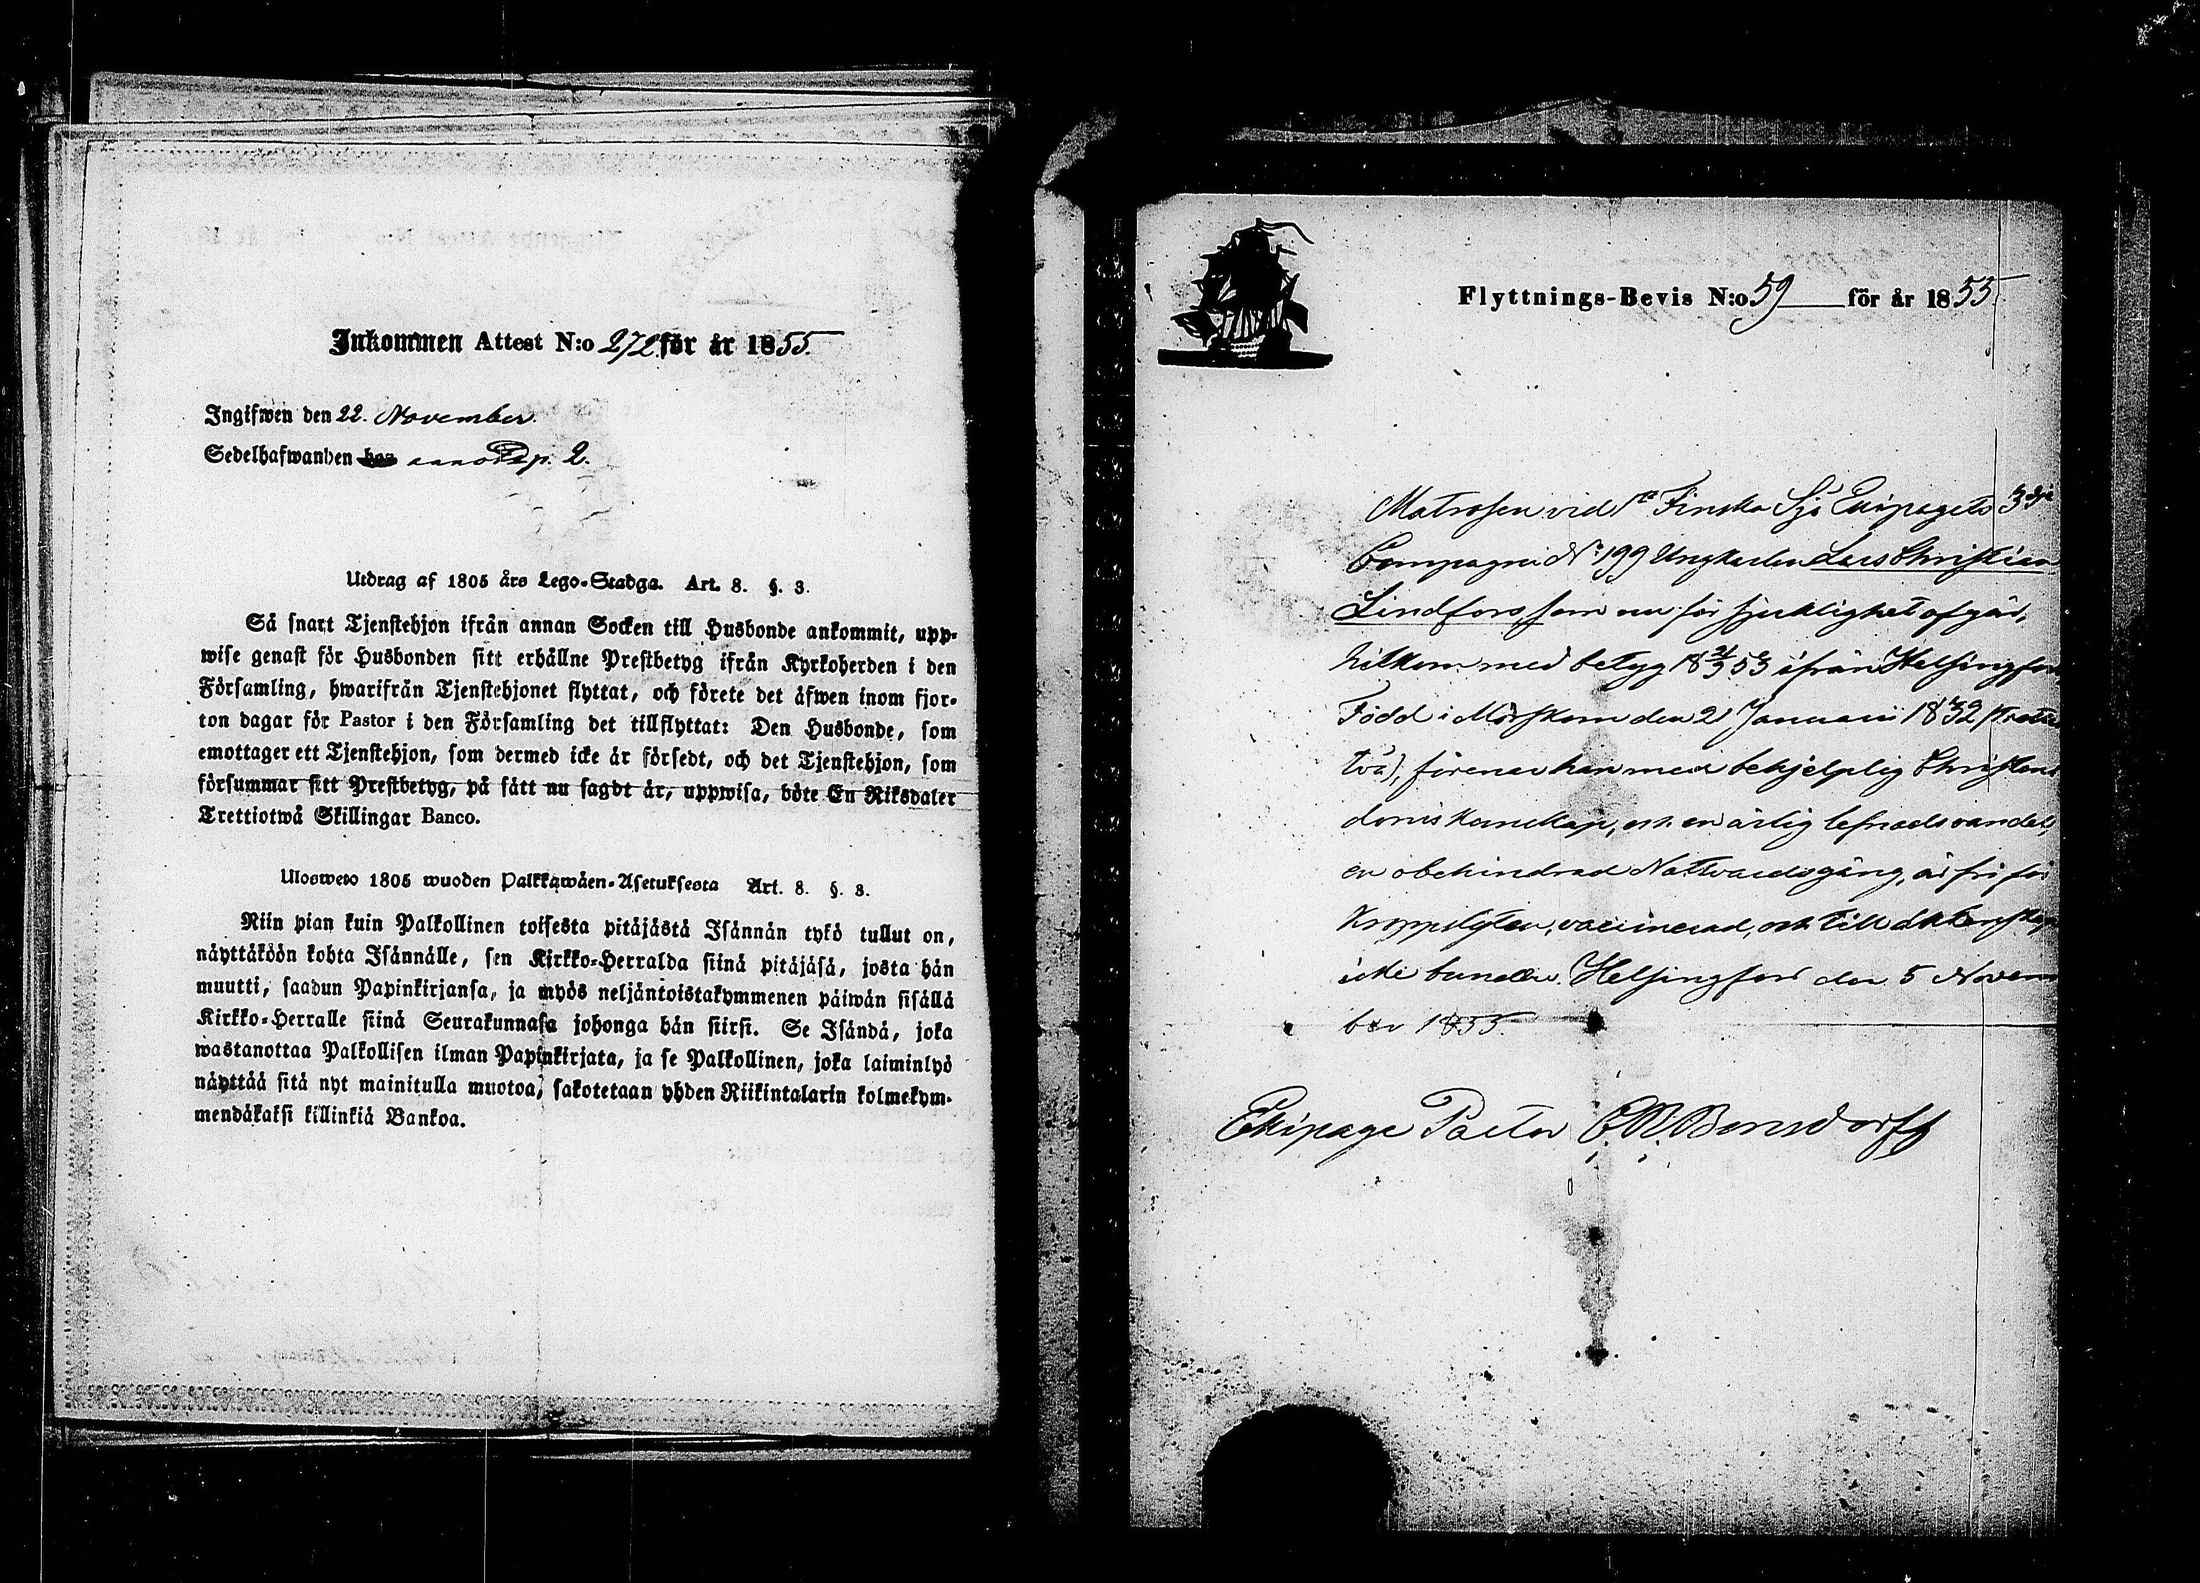 Inkommen Attest N:o 272 för år 1855.
Ingifwen den 22. November.
Sedelhafwanden anno p. 2.
Utdrag af 1805 års Lego-Stadga. Art. 8. §. 3.
Så snart Tjenstehjon ifrån annan Socken till Husbonde ankommit, upp-
wise genast för Husbonden sitt erhållne Prestbetyg ifrån Kyrkoherden i den
Församling, hwarifrån Tjenstehjonet flyttat, och förete det äfwen inom fjor-
ton dagar för Pastor i den Församling det tillflyttat: Den Husbonde, som
emottager ett Tjenstehjon, som dermed icke är försedt, och det Tjenstehjon, som
försummar sitt Prestbetyg, på sätt nu sagdt är, uppwisa, böte En Riksdaler
Trettiotwå Skillingar Banco.
Ulosweto 1805 wuoden Palkkawäen-Asetuksesta Art. 8. §. 3.
Niin pian kuin Palkollinen toisesta pitäjästä Isännän tykö tullut on,
näyttäköön kohta Isännälle, sen Kirkko-Herralda siinä pitäjäsä, josta hän
muutti, saadun Papinkirjansa, ja myös neljäntoistakymmenen päiwän sisällä
Kirkko-Herralle siinä Seurakunnasa johonga hän siirsi. Se Isändä, joka
wastanottaa Palkollisen ilman Papinkirjata, ja se Palkollinen, joka laiminlyö
näyttää sitä nyt mainitulla muotoa, sakotetaan yhden Riikintalarin kolmekym-
mendäkaksi killinkiä Bankoa.
Flyttnings-Bevis N:o 59 för år 1855.
Matrosen vid 1a Finska Sjö Ekipagets 3dje
Compagni No 199 Ungkarlen Lars Christian
Lindfors, som nu för sjuklighet afgår,
hitkom med betyg 18 21/3 53 ifrån Helsingfors
Född i Mörskom den 21 Januari 1832 (tretio
två), förenar han med behjelplig Christen
doms kunskap, och en ärlig lefnadsvandel,
en obehindrad Nattvardsgång, är fri för
kroppslyten, vaccinerad, och till äktenskap
icke bunden. Helsingfors den 5 Novem
ber 1855.
Ekipage Pastor Bonsdorff